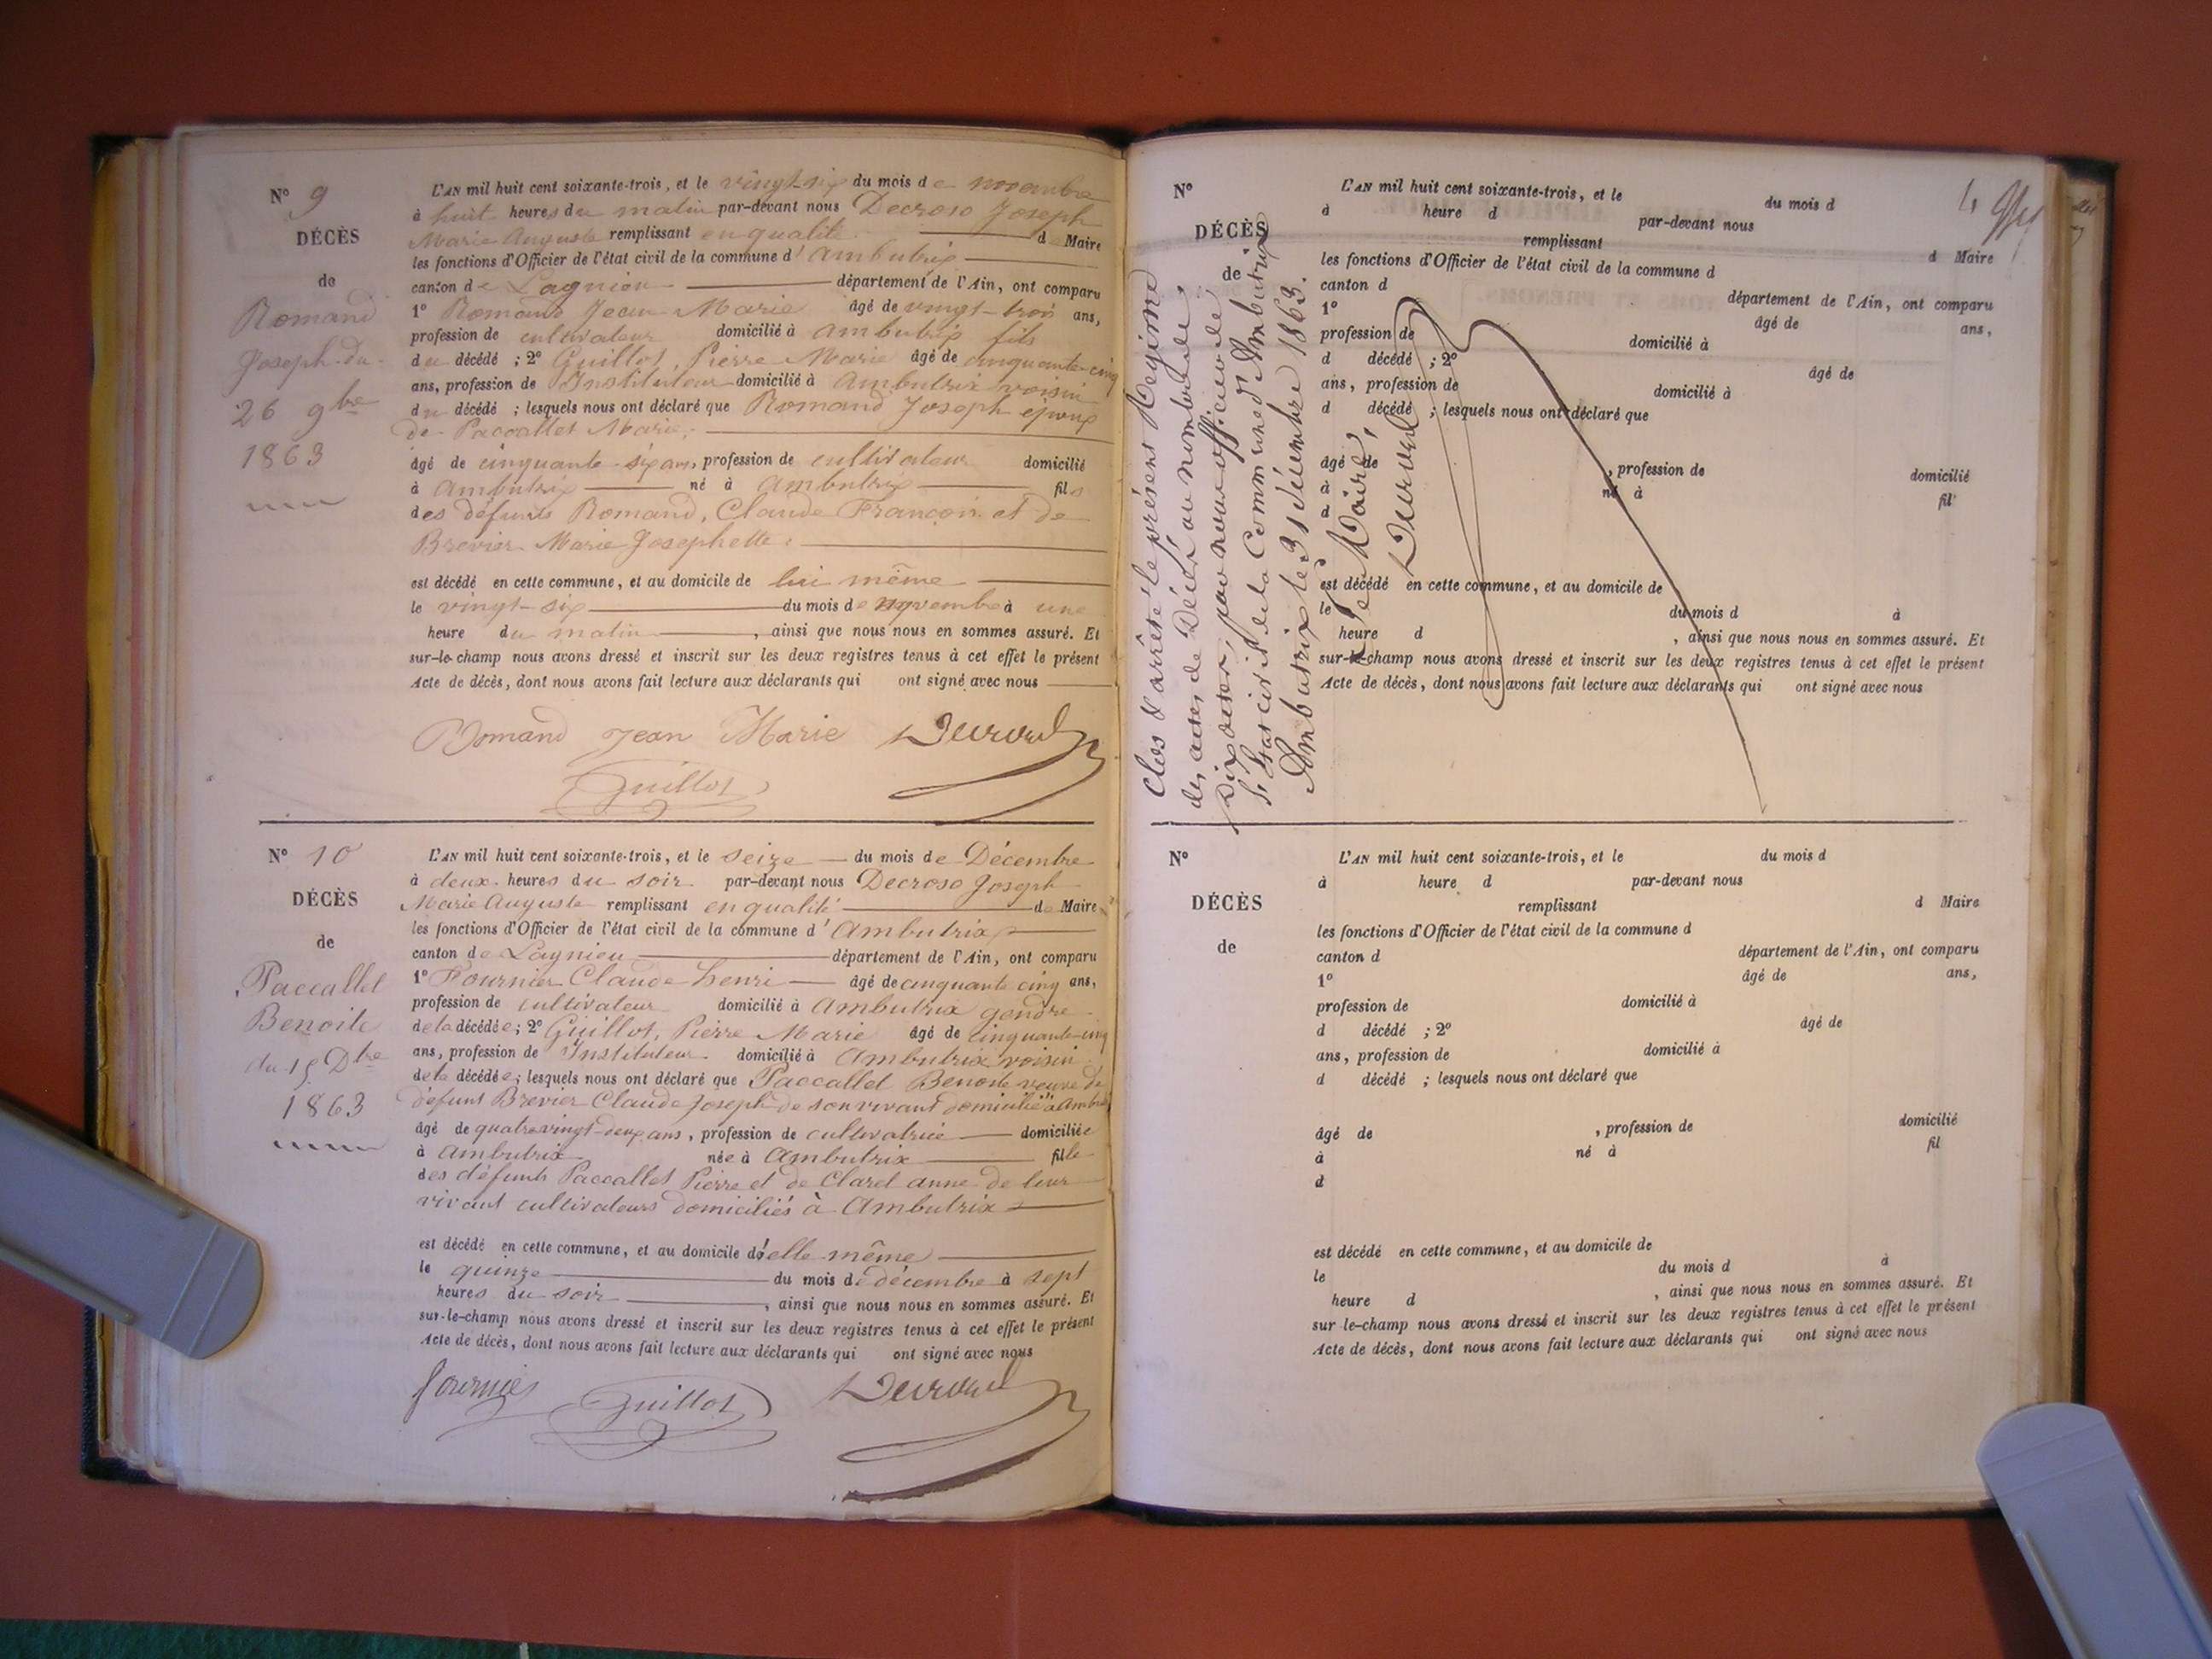 N° 9
DÉCÈS
de
Romand
Joseph du
26 9bre
1863
L'AN mil huit cent soixante-trois, et le vingt-six du mois de novembre
à huit heures du matin par-devant nous Decroso Joseph
Marie Auguste remplissant en qualité de Maire
les fonctions d'Officier de l'état civil de la commune d'Ambutrix
canton de Lagnieu département de l'Ain, ont comparu
1° Romand Jean Marie âgé de vingt-trois ans,
profession de cultivateur domicilié à Ambutrix fils
du décédé ; 2° Guillot, Pierre Marie âgé de cinquante-cinq
ans, profession de Instituteur domicilié à Ambutrix voisin
du décédé ; lesquels nous ont déclaré que Romand Joseph epoux
de Paccallet Marie,
âgé de cinquante-six ans, profession de cultivateur domicilié
à Ambutrix né à Ambutrix fils
des défunts Romand, Claude François et de
Brevier Marie Josephette
est décédé en cette commune, et au domicile de lui même
le vingt-six du mois de novembre à une
heure du matin, ainsi que nous nous en sommes assuré. Et
sur-le-champ nous avons dressé et inscrit sur les deux registres tenus à cet effet le présent
Acte de décès, dont nous avons fait lecture aux déclarants qui ont signé avec nous
Romand Jean Marie
Guillot
N° 10
DÉCÈS
de
Paccallet
Benoite
du 15 Dbre
1863
L'AN mil huit cent soixante-trois, et le seize du mois de Décembre
à deux heures du soir par-devant nous Decroso Joseph
Marie Auguste remplissant en qualité de Maire
les fonctions d'Officier de l'état civil de la commune d'Ambutrix
canton de Lagnieu département de l'Ain, ont comparu
1° Fournier Claude henri âgé de cinquante cinq ans,
profession de cultivateur domicilié à Ambutrix gendre
de la décédée ; 2° Guillot, Pierre Marie âgé de cinquante-cinq
ans, profession de Instituteur domicilié à Ambutrix voisin
de la décédée ; lesquels nous ont déclaré que Paccallet Benoite veuve de
défunt Brevier Claude Joseph de son vivant domicilié à
âgé de quatre vingt-deux ans, profession de cultivatrice domiciliée
à Ambutrix née à Ambutrix fille
des défunts Paccallet Pierre et de Claret anne de leur
vivant cultivateurs domiciliés à Ambutrix
est décédé en cette commune, et au domicile d'elle même
le quinze du mois de décembre à sept
heures du soir, ainsi que nous nous en sommes assuré. Et
sur-le-champ nous avons dressé et inscrit sur les deux registres tenus à cet effet le présent
Acte de décès, dont nous avons fait lecture aux déclarants qui ont signé avec nous
fournier
Guillot
N°
DÉCÈS
de
L'AN mil huit cent soixante-trois, et le du mois d
à heure d par-devant nous
remplissant d Maire
les fonctions d'Officier de l'état civil de la commune d
canton d département de l'Ain, ont comparu
1° âgé de ans,
profession de domicilié à
d décédé ; 2° âgé de
ans, profession de domicilié à
d décédé ; lesquels nous ont déclaré que
âgé de , profession de domicilié
à né à fil
d
est décédé en cette commune, et au domicile de
le du mois d à
heure d , ainsi que nous nous en sommes assuré. Et
sur-le-champ nous avons dressé et inscrit sur les deux registres tenus à cet effet le présent
Acte de décès, dont nous avons fait lecture aux déclarants qui ont signé avec nous
Clos & arrêté le présent
des actes de Décès, au nombre de
Dix actes, par nous officier de
l'état civil de la Commune d'Ambutrix
Ambutrix le 31 décembre 1863.
Le Maire,
N°
DÉCÈS
de
L'AN mil huit cent soixante-trois, et le du mois d
à heure d par-devant nous
remplissant d Maire
les fonctions d'Officier de l'état civil de la commune d
canton d département de l'Ain, ont comparu
1° âgé de ans,
profession de domicilié à
d décédé ; 2° âgé de
ans, profession de domicilié à
d décédé ; lesquels nous ont déclaré que
âgé de , profession de domicilié
à né à fil
d
est décédé en cette commune, et au domicile de
le du mois d à
heure d , ainsi que nous nous en sommes assuré. Et
sur-le-champ nous avons dressé et inscrit sur les deux registres tenus à cet effet le présent
Acte de décès, dont nous avons fait lecture aux déclarants qui ont signé avec nous